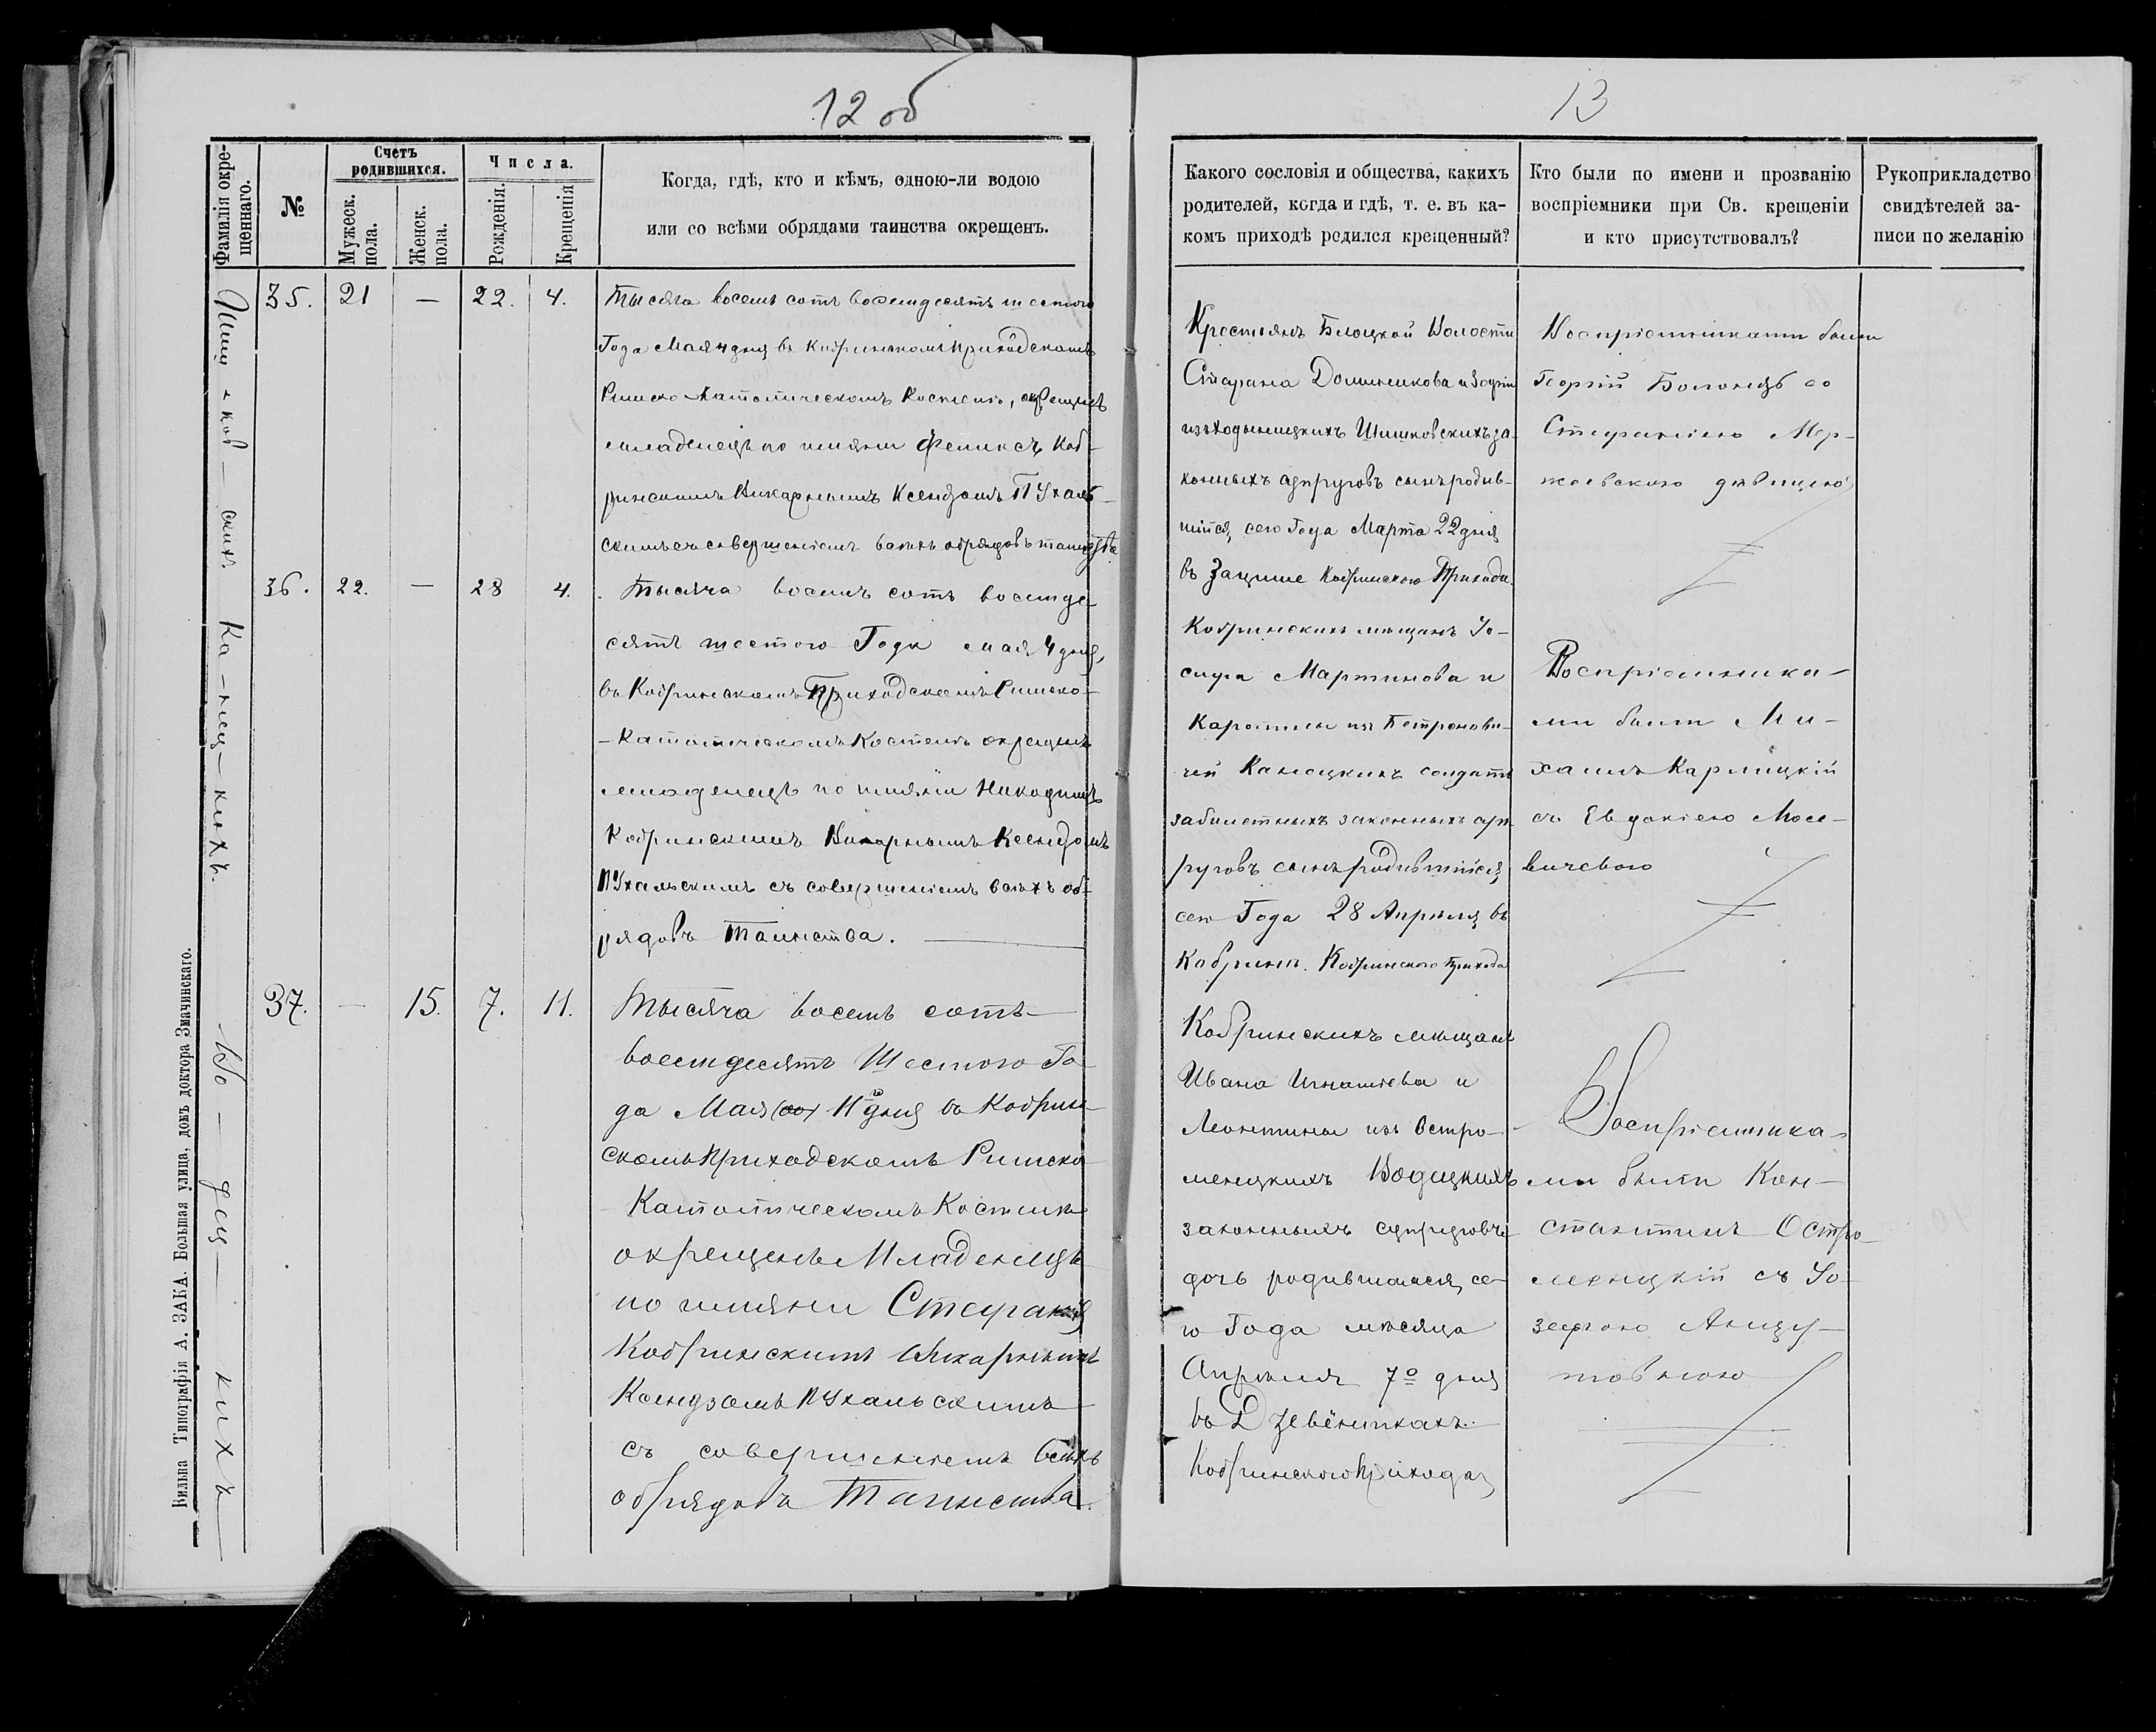 12 об
Фамилія окре-
шеннаго.
№
Счетъ
родившихся.
Мужеск.
пола.
Женск.
пола.
Числа.
Рожденія.
Крещенія
Когда, гдѣ, кто и кѣмъ, одною-ли водою
или со всѣми обрядами таинства окрещенъ.
35. 21 — 22. 4.
Тысяча восемь сотъ восемдесятъ шестого
Года Мая 4 дня въ Кобринскомъ Приходскомъ
Римско-Католическомъ Костелѣ, окрещенъ
младенецъ по имяни Феликсъ Коб-
ринскимъ Викарнымъ Ксендзомъ ПУхаль-
скимъ съ совершеніемъ всѣхъ обрядовъ таинства
36. 22. — 28 4.
Тысяча восемь сотъ восемде-
сятъ шестого Года мая 4 дня,
въ Кобринскомъ Приходскомъ Римско-
-Католическомъ Костелѣ окрещенъ
младенецъ по имяни Никодимъ
Кобринскимъ Викарнымъ Ксендзомъ
ПУхальскимъ съ совершеніемъ всѣхъ об-
рядовъ Таинства.
37. — 15. 7. 11.
Тысяча восемь сотъ
восемдесятъ Шестого Го-
да Мая 11 дня въ Кобрин-
скомъ Приходскомъ Римско
-Католическомъ Костелѣ
окрещенъ Младенецъ
по имяни Стефанія
Кобринскимъ Викарнымъ
Ксендзомъ ПУхальскимъ
съ совершеніемъ всѣхъ
обрядовъ Таинства.
Шиш-ков-скихъ
Ка-нец-кихъ.
Во-дец-кихъ
Вильна Типографія А. ЗАКА. Большая улица, домъ доктора Змачинскаго.
13
Какого сословія и общества, какихъ
родителей, когда и гдѣ, т. е. въ ка-
комъ приходѣ родился крещенный?
Кто были по имени и прозванію
воспріемники при Св. крещеніи
и кто присутствовалъ?
Рукоприкладство
свидѣтелей за-
писи по желанію
Крестьянъ Блоцкой Волости
Стефана Доминикова и Зофіи
изъ Ходыницкихъ Шишковскихъ за-
конныхъ супруговъ сынъ родив-
шійся, сего Года Марта 22 дня
въ Кобринского Прихода.
Воспріемниками были
Георгій со
Стефаніею Мер-
жеевскою дѣвицею
Кобринскихъ мѣщанъ Іо-
сифа Мартинова и
Каролины изъ Петронови-
чей Канецкихъ солдатъ
забилетныхъ законныхъ суп-
руговъ сынъ родившійся,
сего Года 28 Апрѣля въ
Кобринѣ. Кобринского Прихода
Воспріемника-
ми были Ми-
хаилъ Карлицкій
съ Евдокіею
вичевою
Кобринскихъ мѣщанъ
Ивана Игнатіева и
Леонтины изъ Остро-
менцкихъ Водецкихъ
законныхъ супруговъ
дочь родившаяся, се-
го Года мѣсяца
Апрѣля 7º дня
въ Дзевёнткахъ.
Кобринского Прихода,
Воспріемника-
ми были Кон-
стантинъ Остро-
менцкій съ Іо-
зефою Анцу-
товною